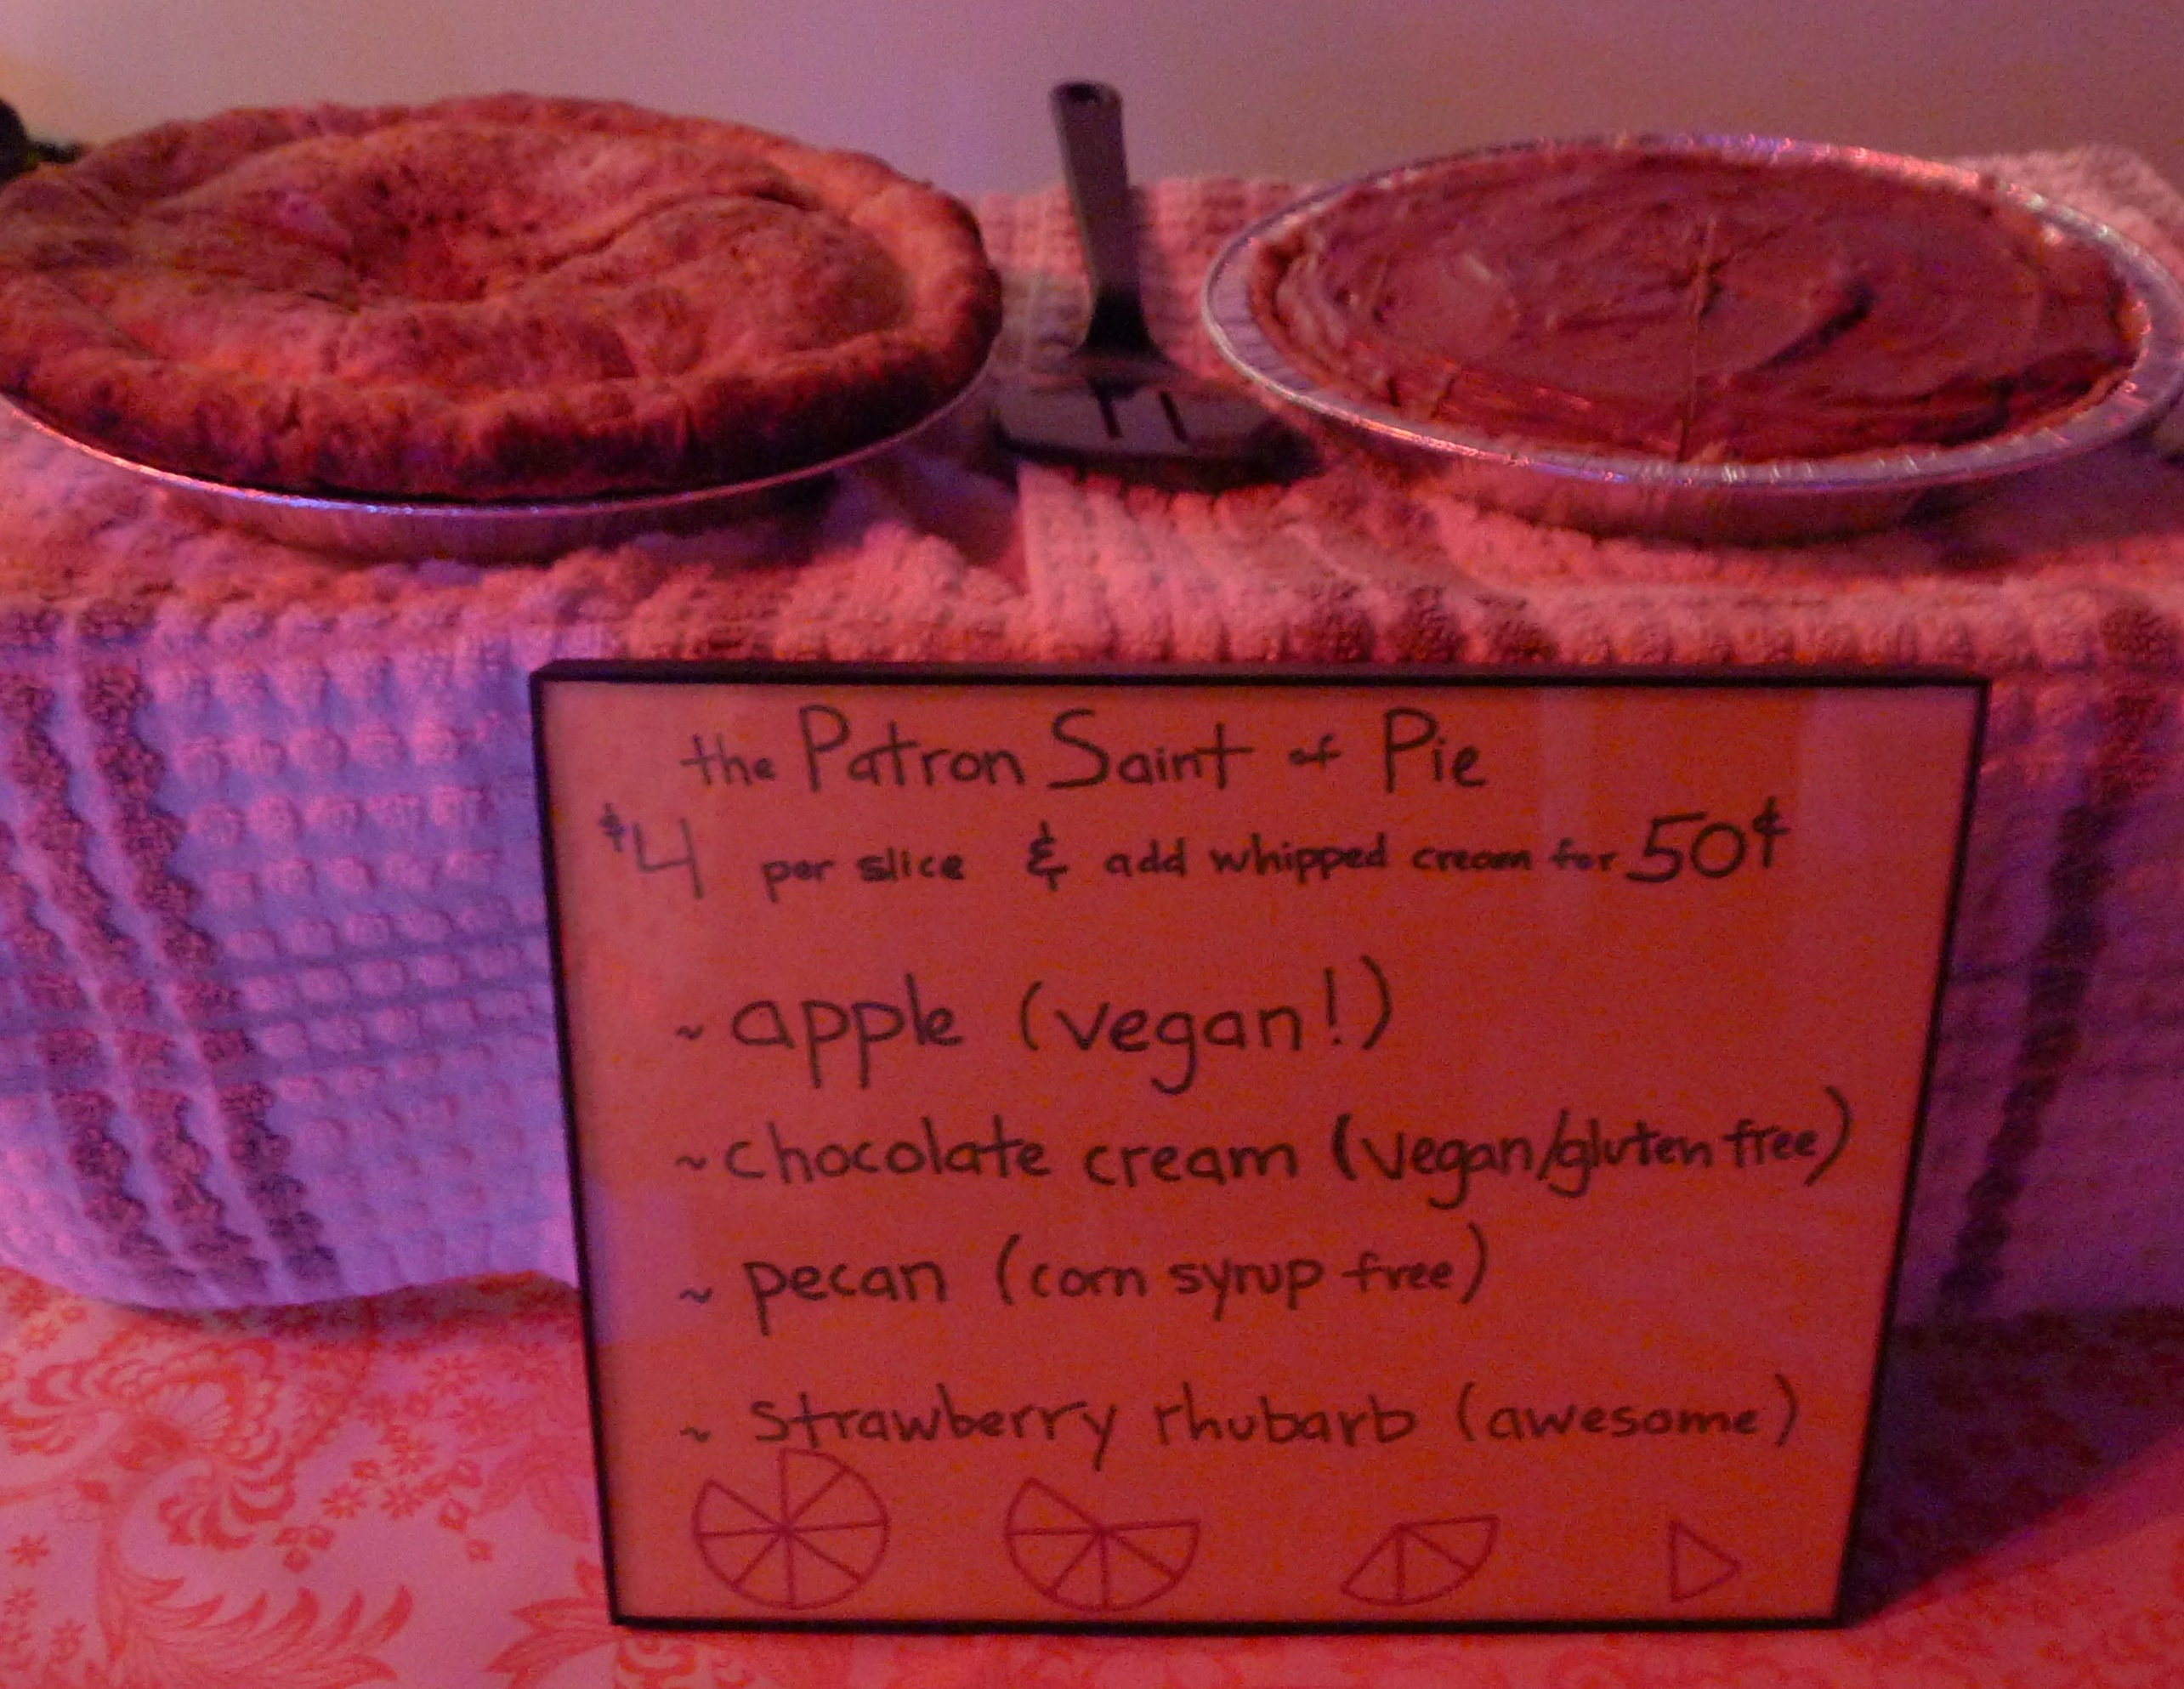 the Patron Saint of Pie
$4 per slice & add whipped cream for 50¢
~ apple (vegan!)
~ chocolate cream (vegan/gluten free)
~ pecan (corn syrup free)
~ strawberry rhubarb (awesome)